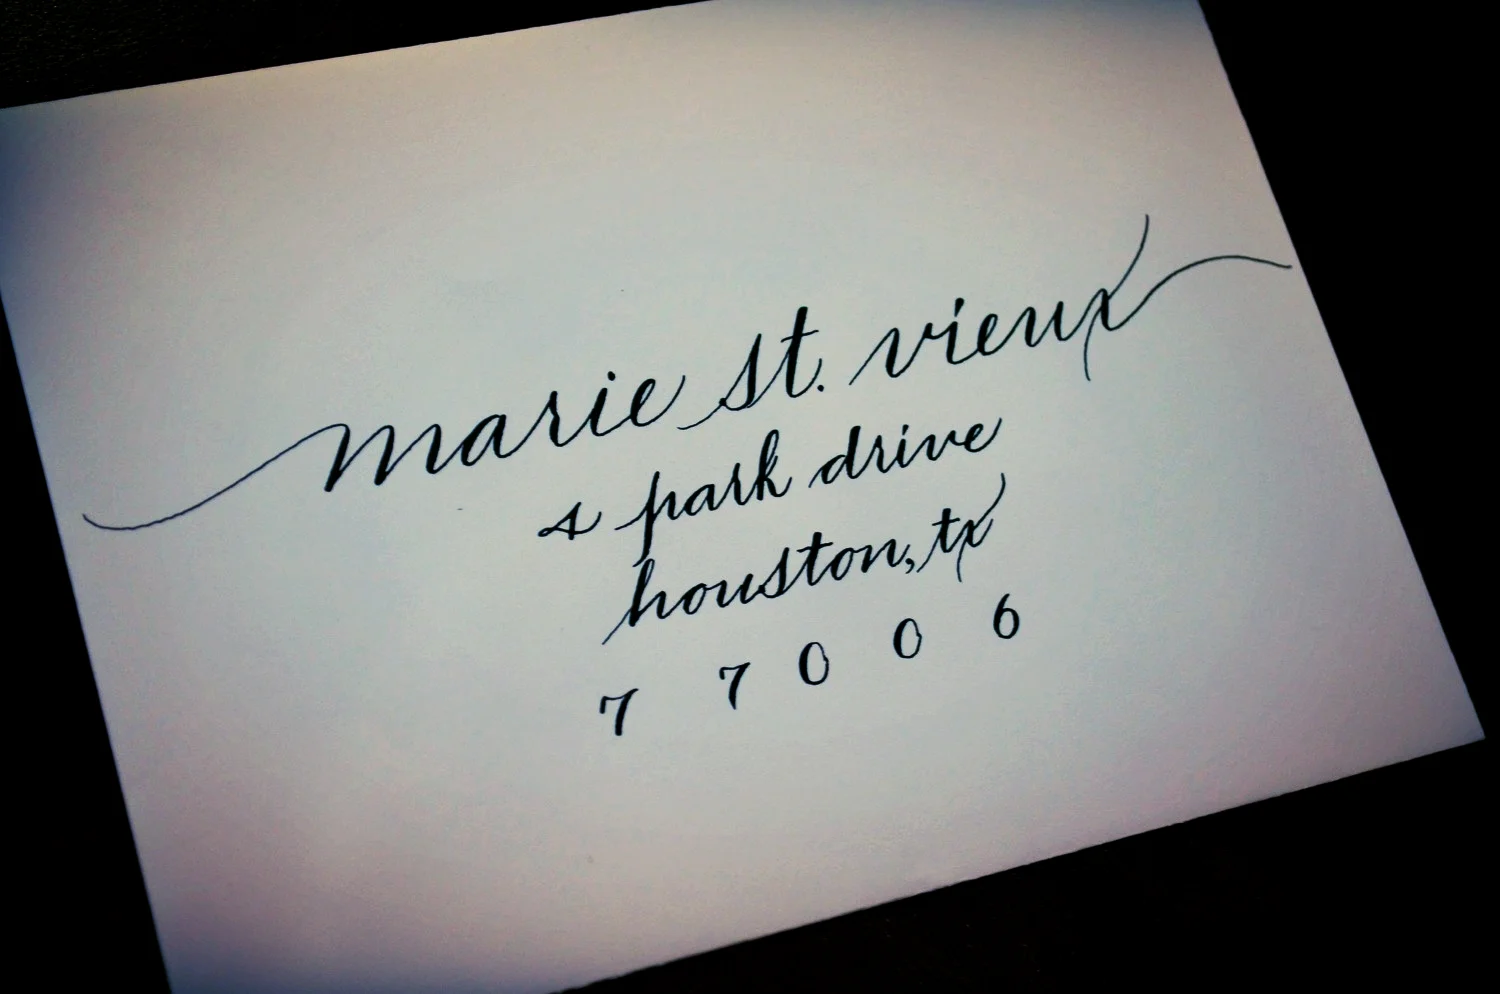 marie st. vieux
4 park drive
houston, tx
7 7 0 0 6